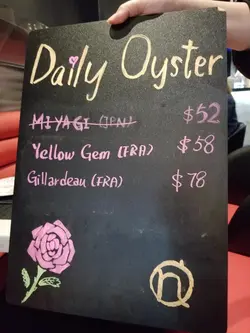 Daily Oyster
MIYAGI (JPN) $52
Yellow Gem (FRA) $58
Gillardeau (FRA) $78
n